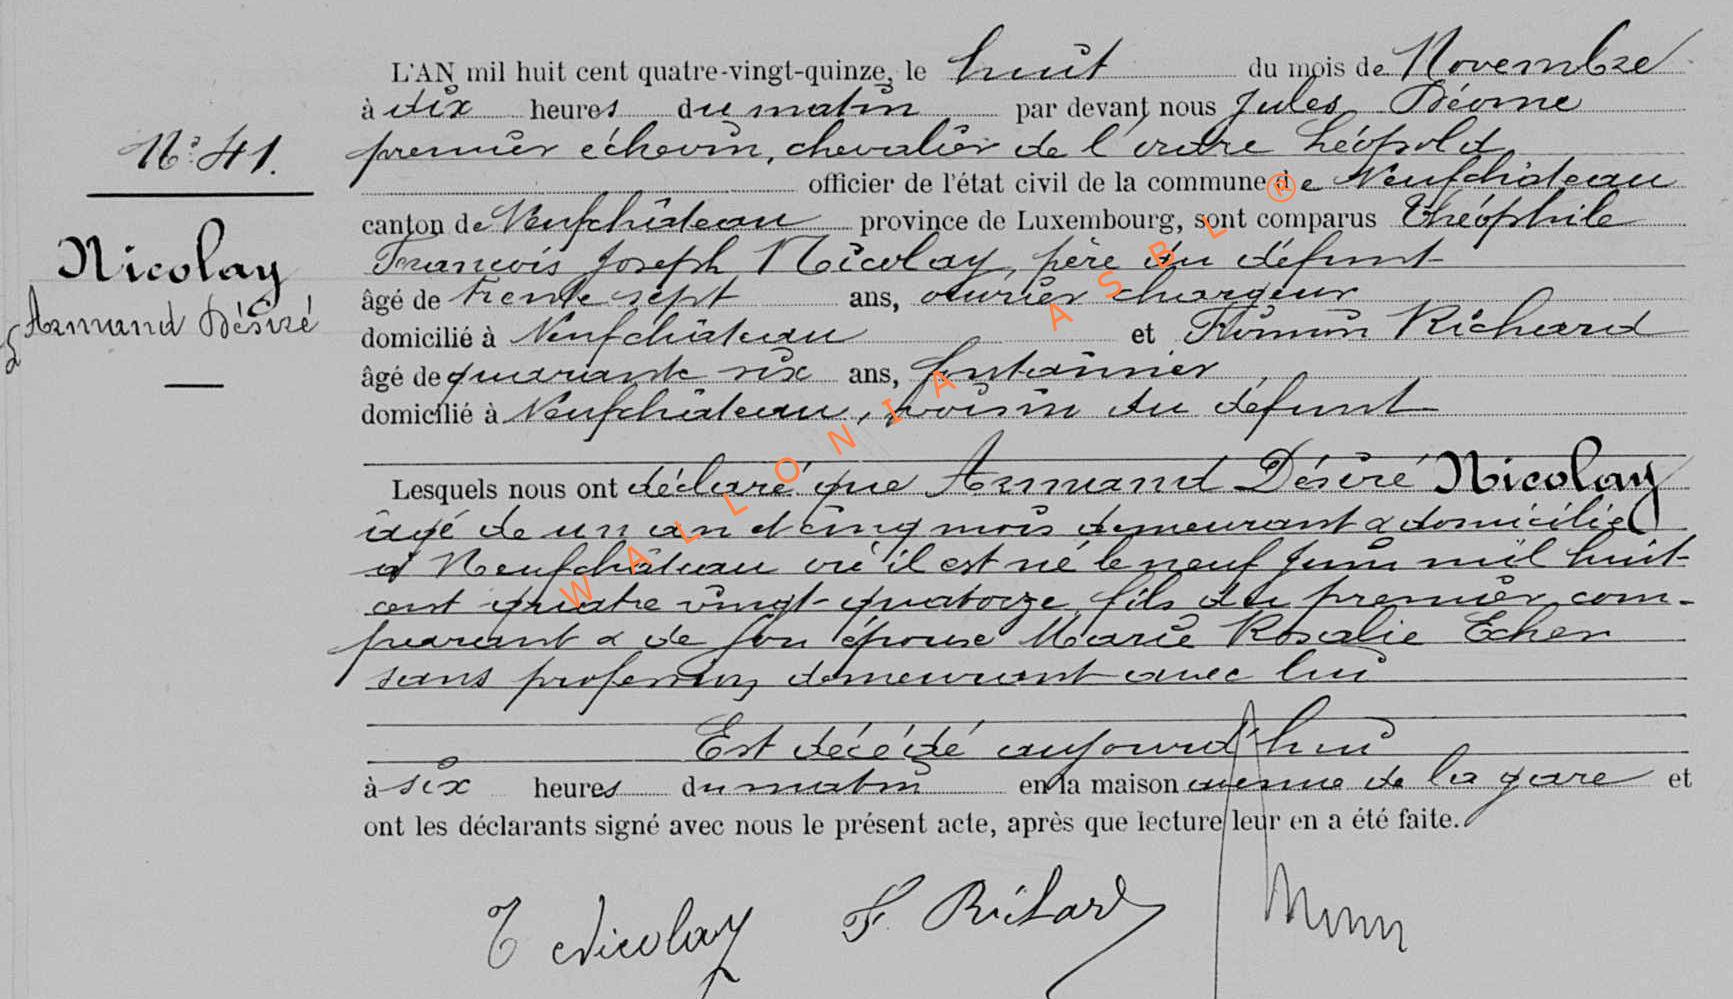 L'AN mil huit cent quatre-vingt-quinze, le huit du mois de Novembre
à dix heures du matin par devant nous Jules Déome
N° 41.
premier échevin, chevalier de l'ordre Léopold
officier de l'état civil de la commune de Neufchâteau
canton de Neufchâteau province de Luxembourg, sont comparus Théophile
Nicolay
François Joseph Nicolay, père du défunt
âgé de trente sept ans, ouvrier chargeur
Armand Désiré
domicilié à Neufchâteau et Firmin Richard
âgé de quarante six ans, fontainier
domicilié à Neufchâteau, voisin du défunt
Lesquels nous ont déclaré que Armand Désiré Nicolay
âgé de un an et cinq mois demeurant & domicilié
à Neufchâteau où il est né le neuf Juin mil huit
cent quatre vingt-quatorze, fils du premier com-
parant & de son épouse Marie Rosalie Echer
sans profession, demeurant avec lui
Est décédé aujourd'hui
à six heures du matin en la maison avenue de la gare et
ont les déclarants signé avec nous le présent acte, après que lecture leur en a été faite.
T Nicolay F. Richard
WALLONIA ASBL ®